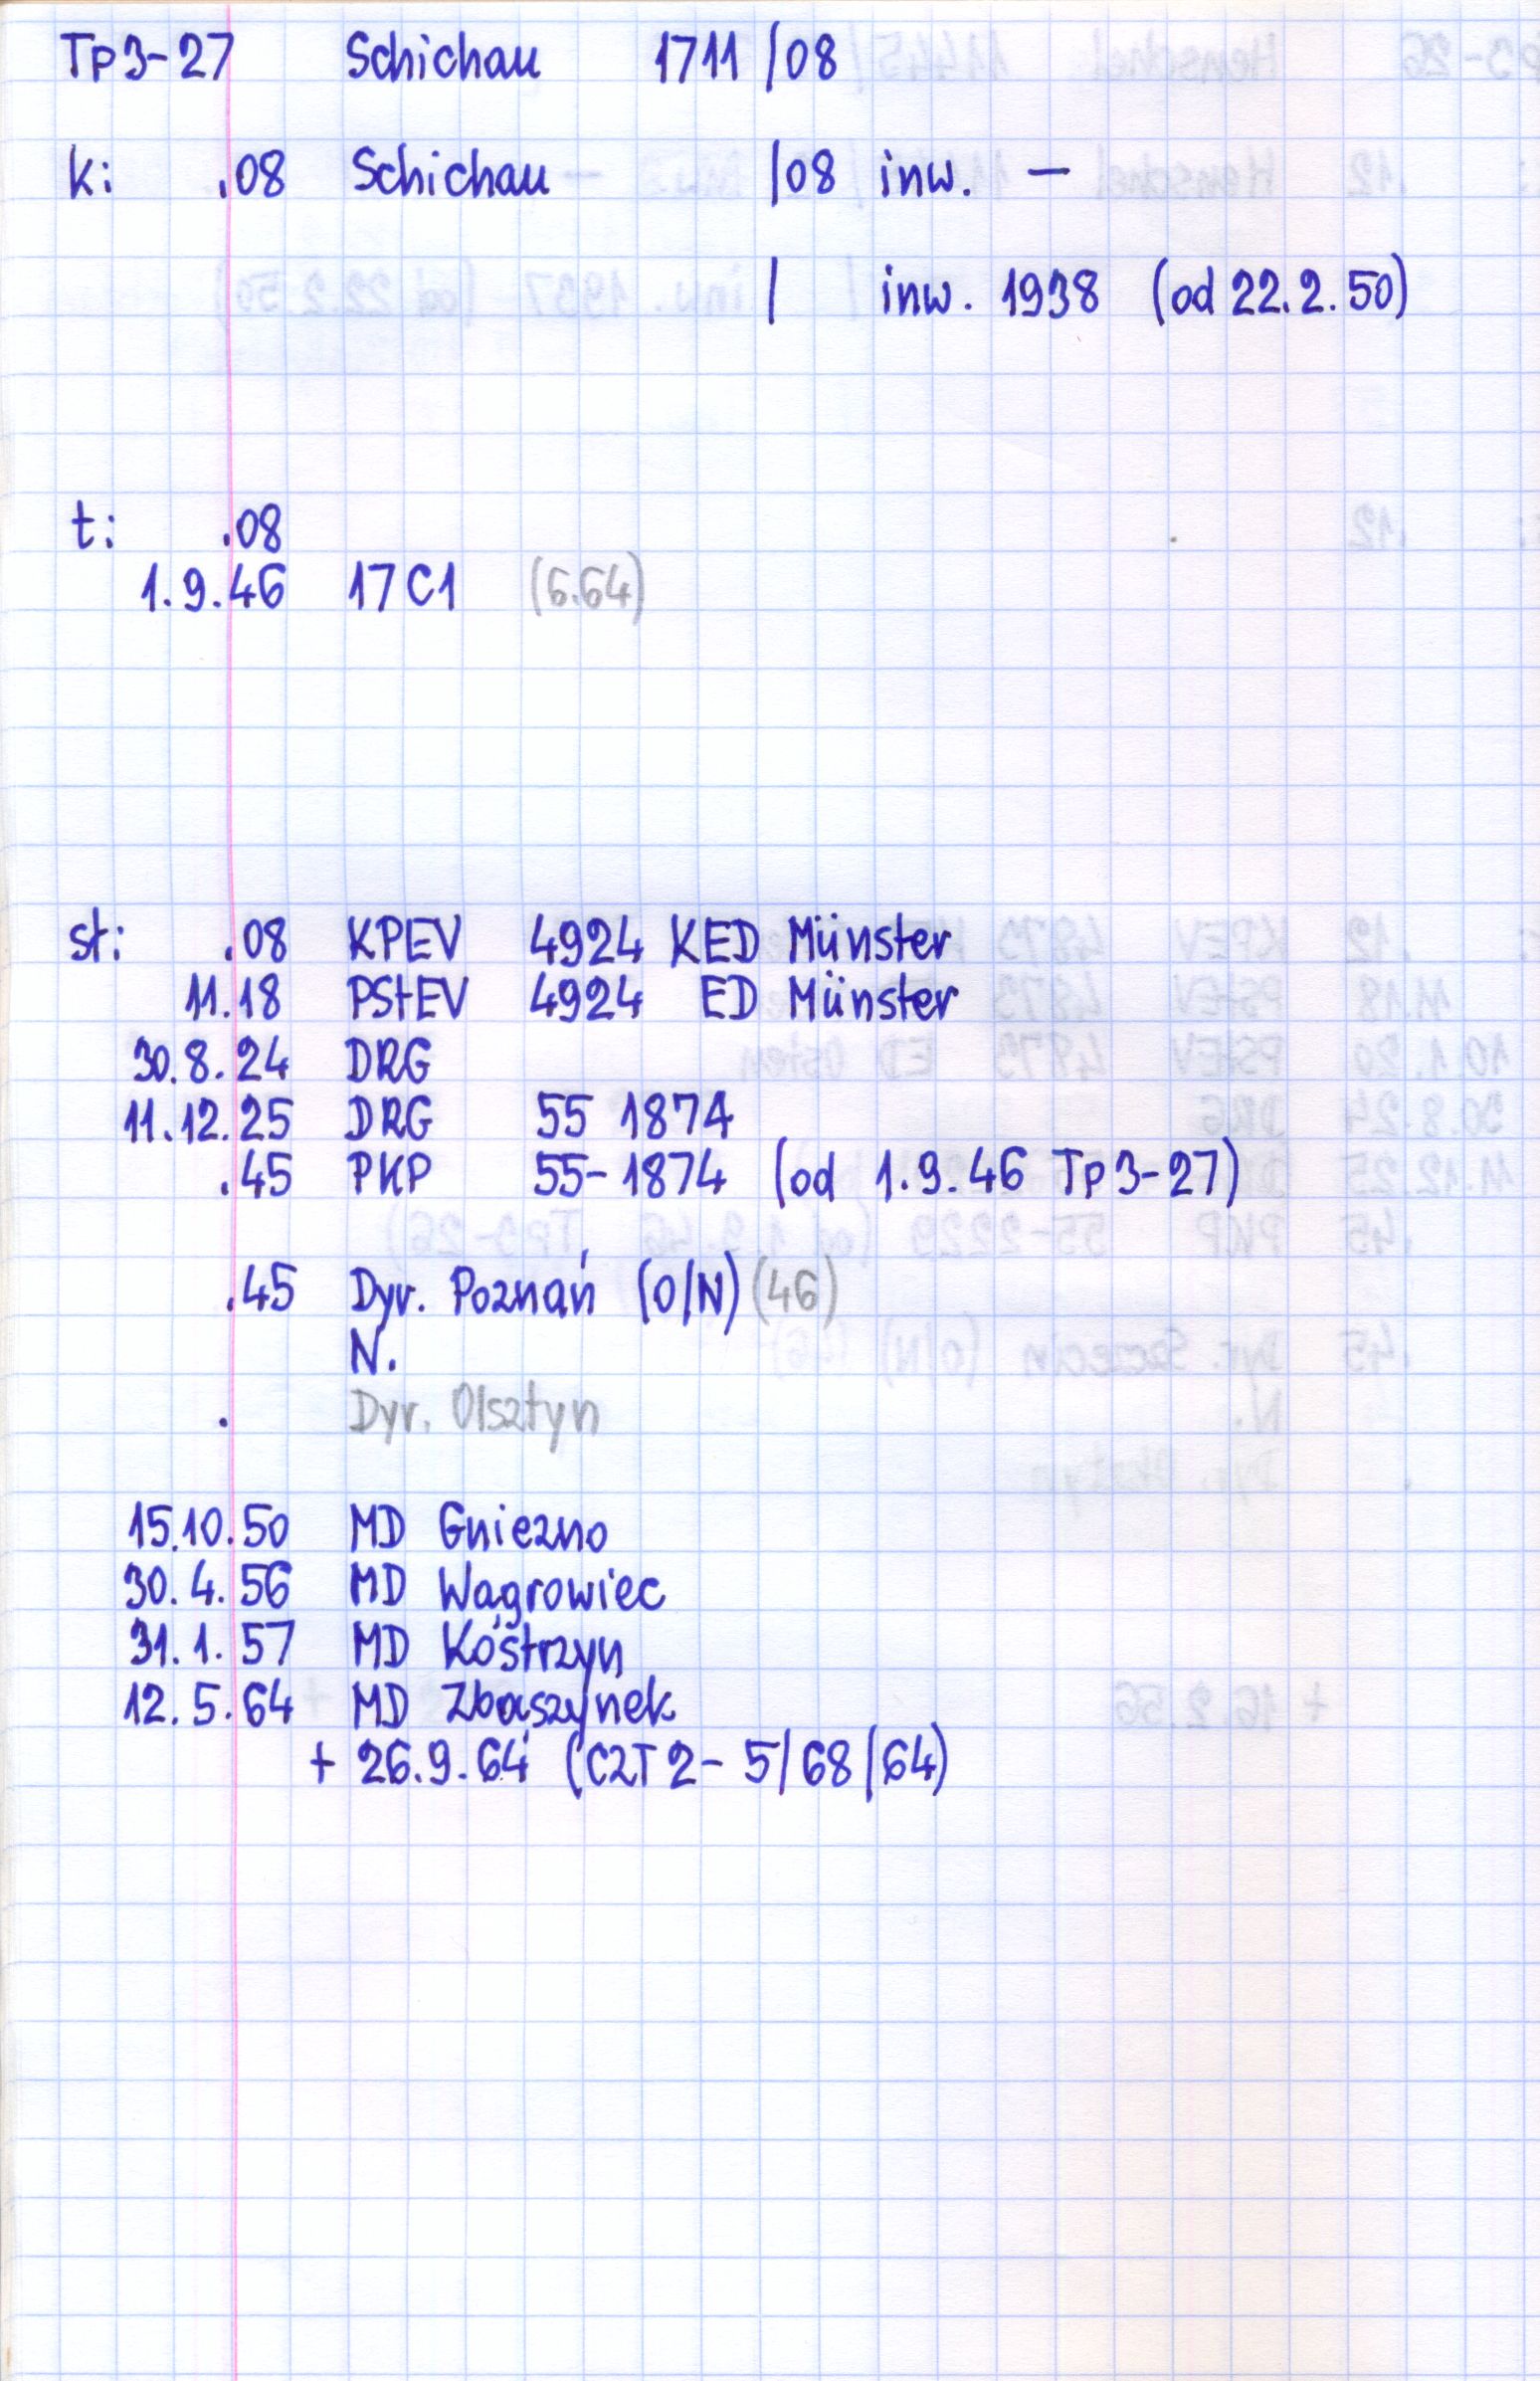 Tp3-27 Schichau 1711/08
k: .08 Schichau /08 inw. –
/ inw. 1938 (od 22.2.50)
t: .08
1.9.46 17C1 (6.64)
st: .08 KPEV 4924 KED Münster
11.18 PStEV 4924 ED Münster
30.8.24 DRG
11.12.25 DRG 55 1874
.45 PKP 55-1874 (od 1.9.46 Tp3-27)
.45 Dyr. Poznań (O/N) (46)
N.
. Dyr. Olsztyn
15.10.50 MD Gniezno
30.4.56 MD Wągrowiec
31.1.57 MD Kostrzyn
12.5.64 MD Zbąszynek
+ 26.9.64 (CZT2-5/68/64)